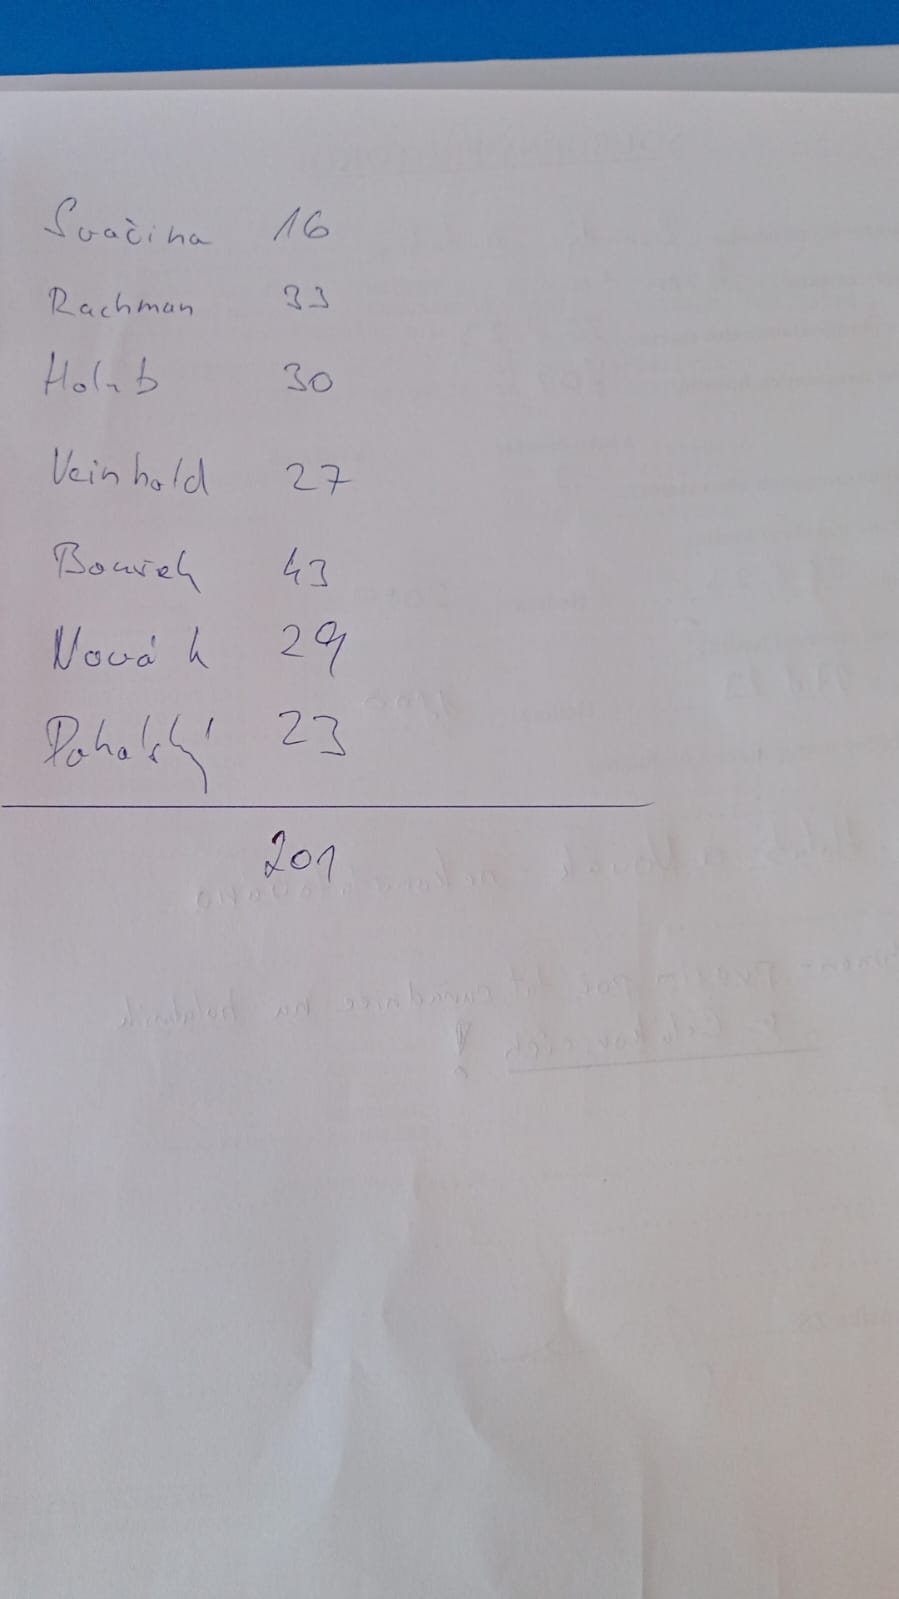 Svačina 16
Rachman 33
Holub 30
Veinhold 27
Bouček 43
Novák 29
Pohalský 23
201